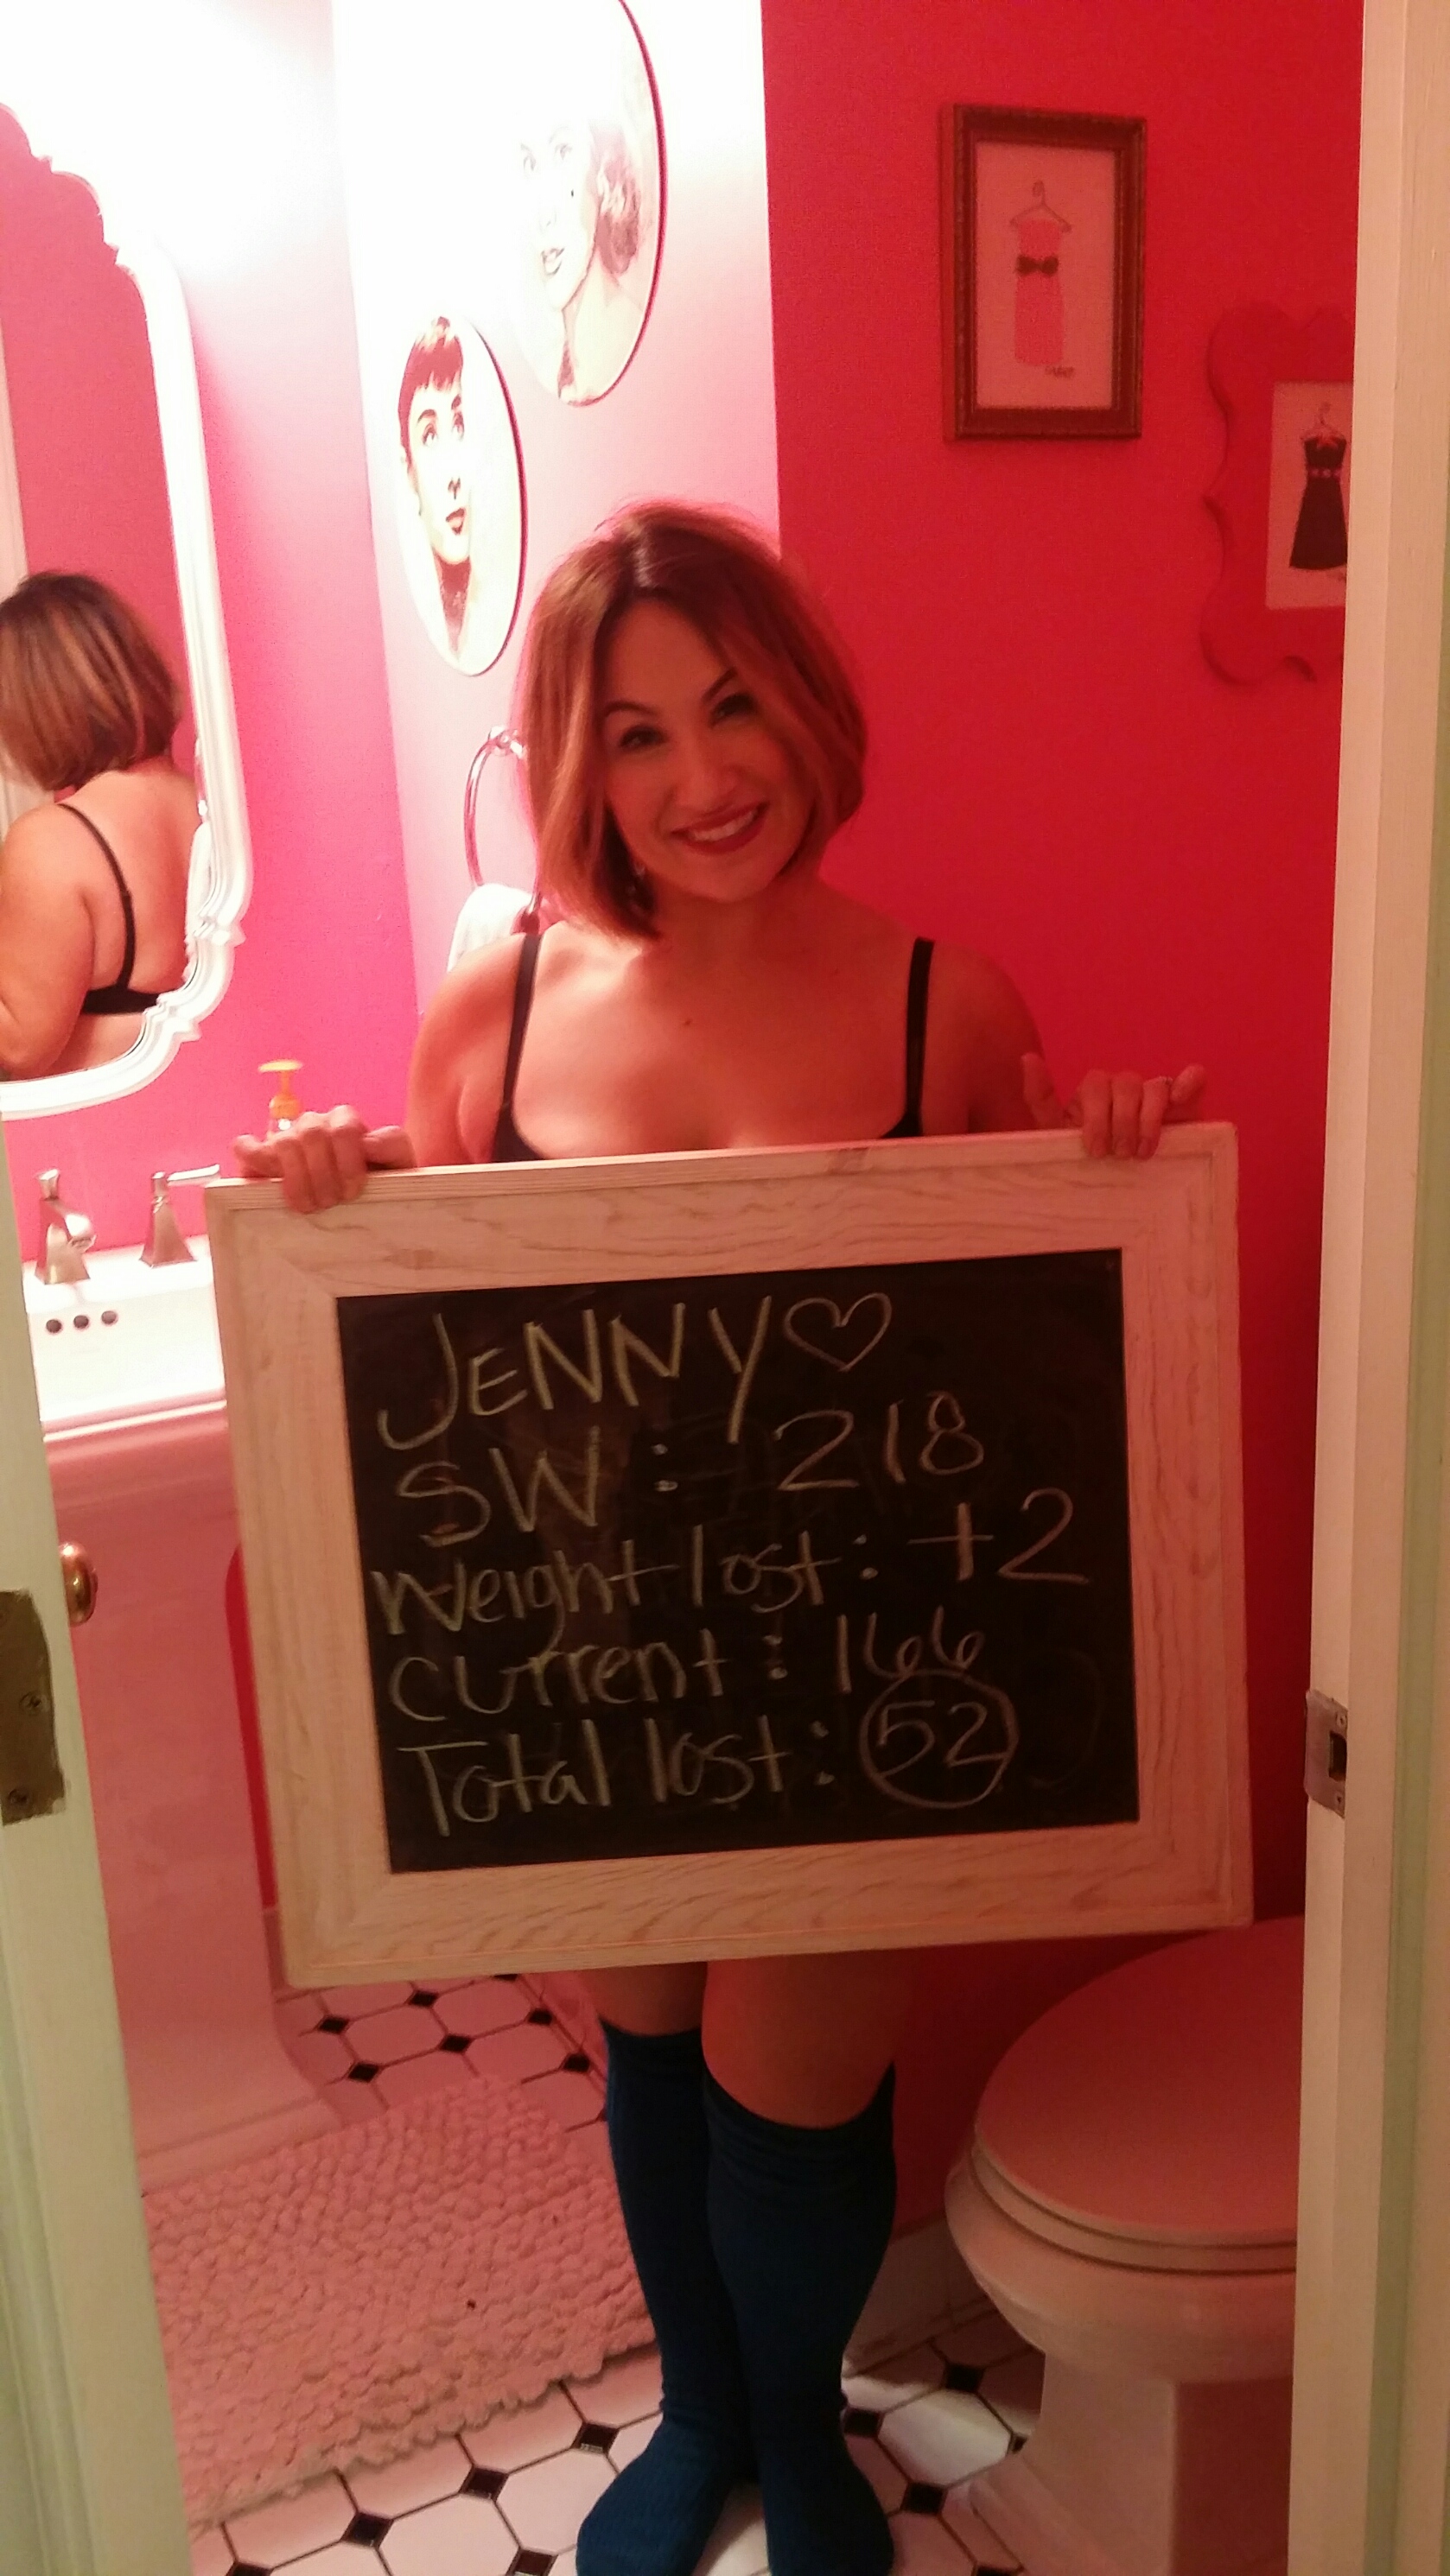 JENNY♡
SW: 218
Weight lost: +2
Current: 166
Total lost: 52